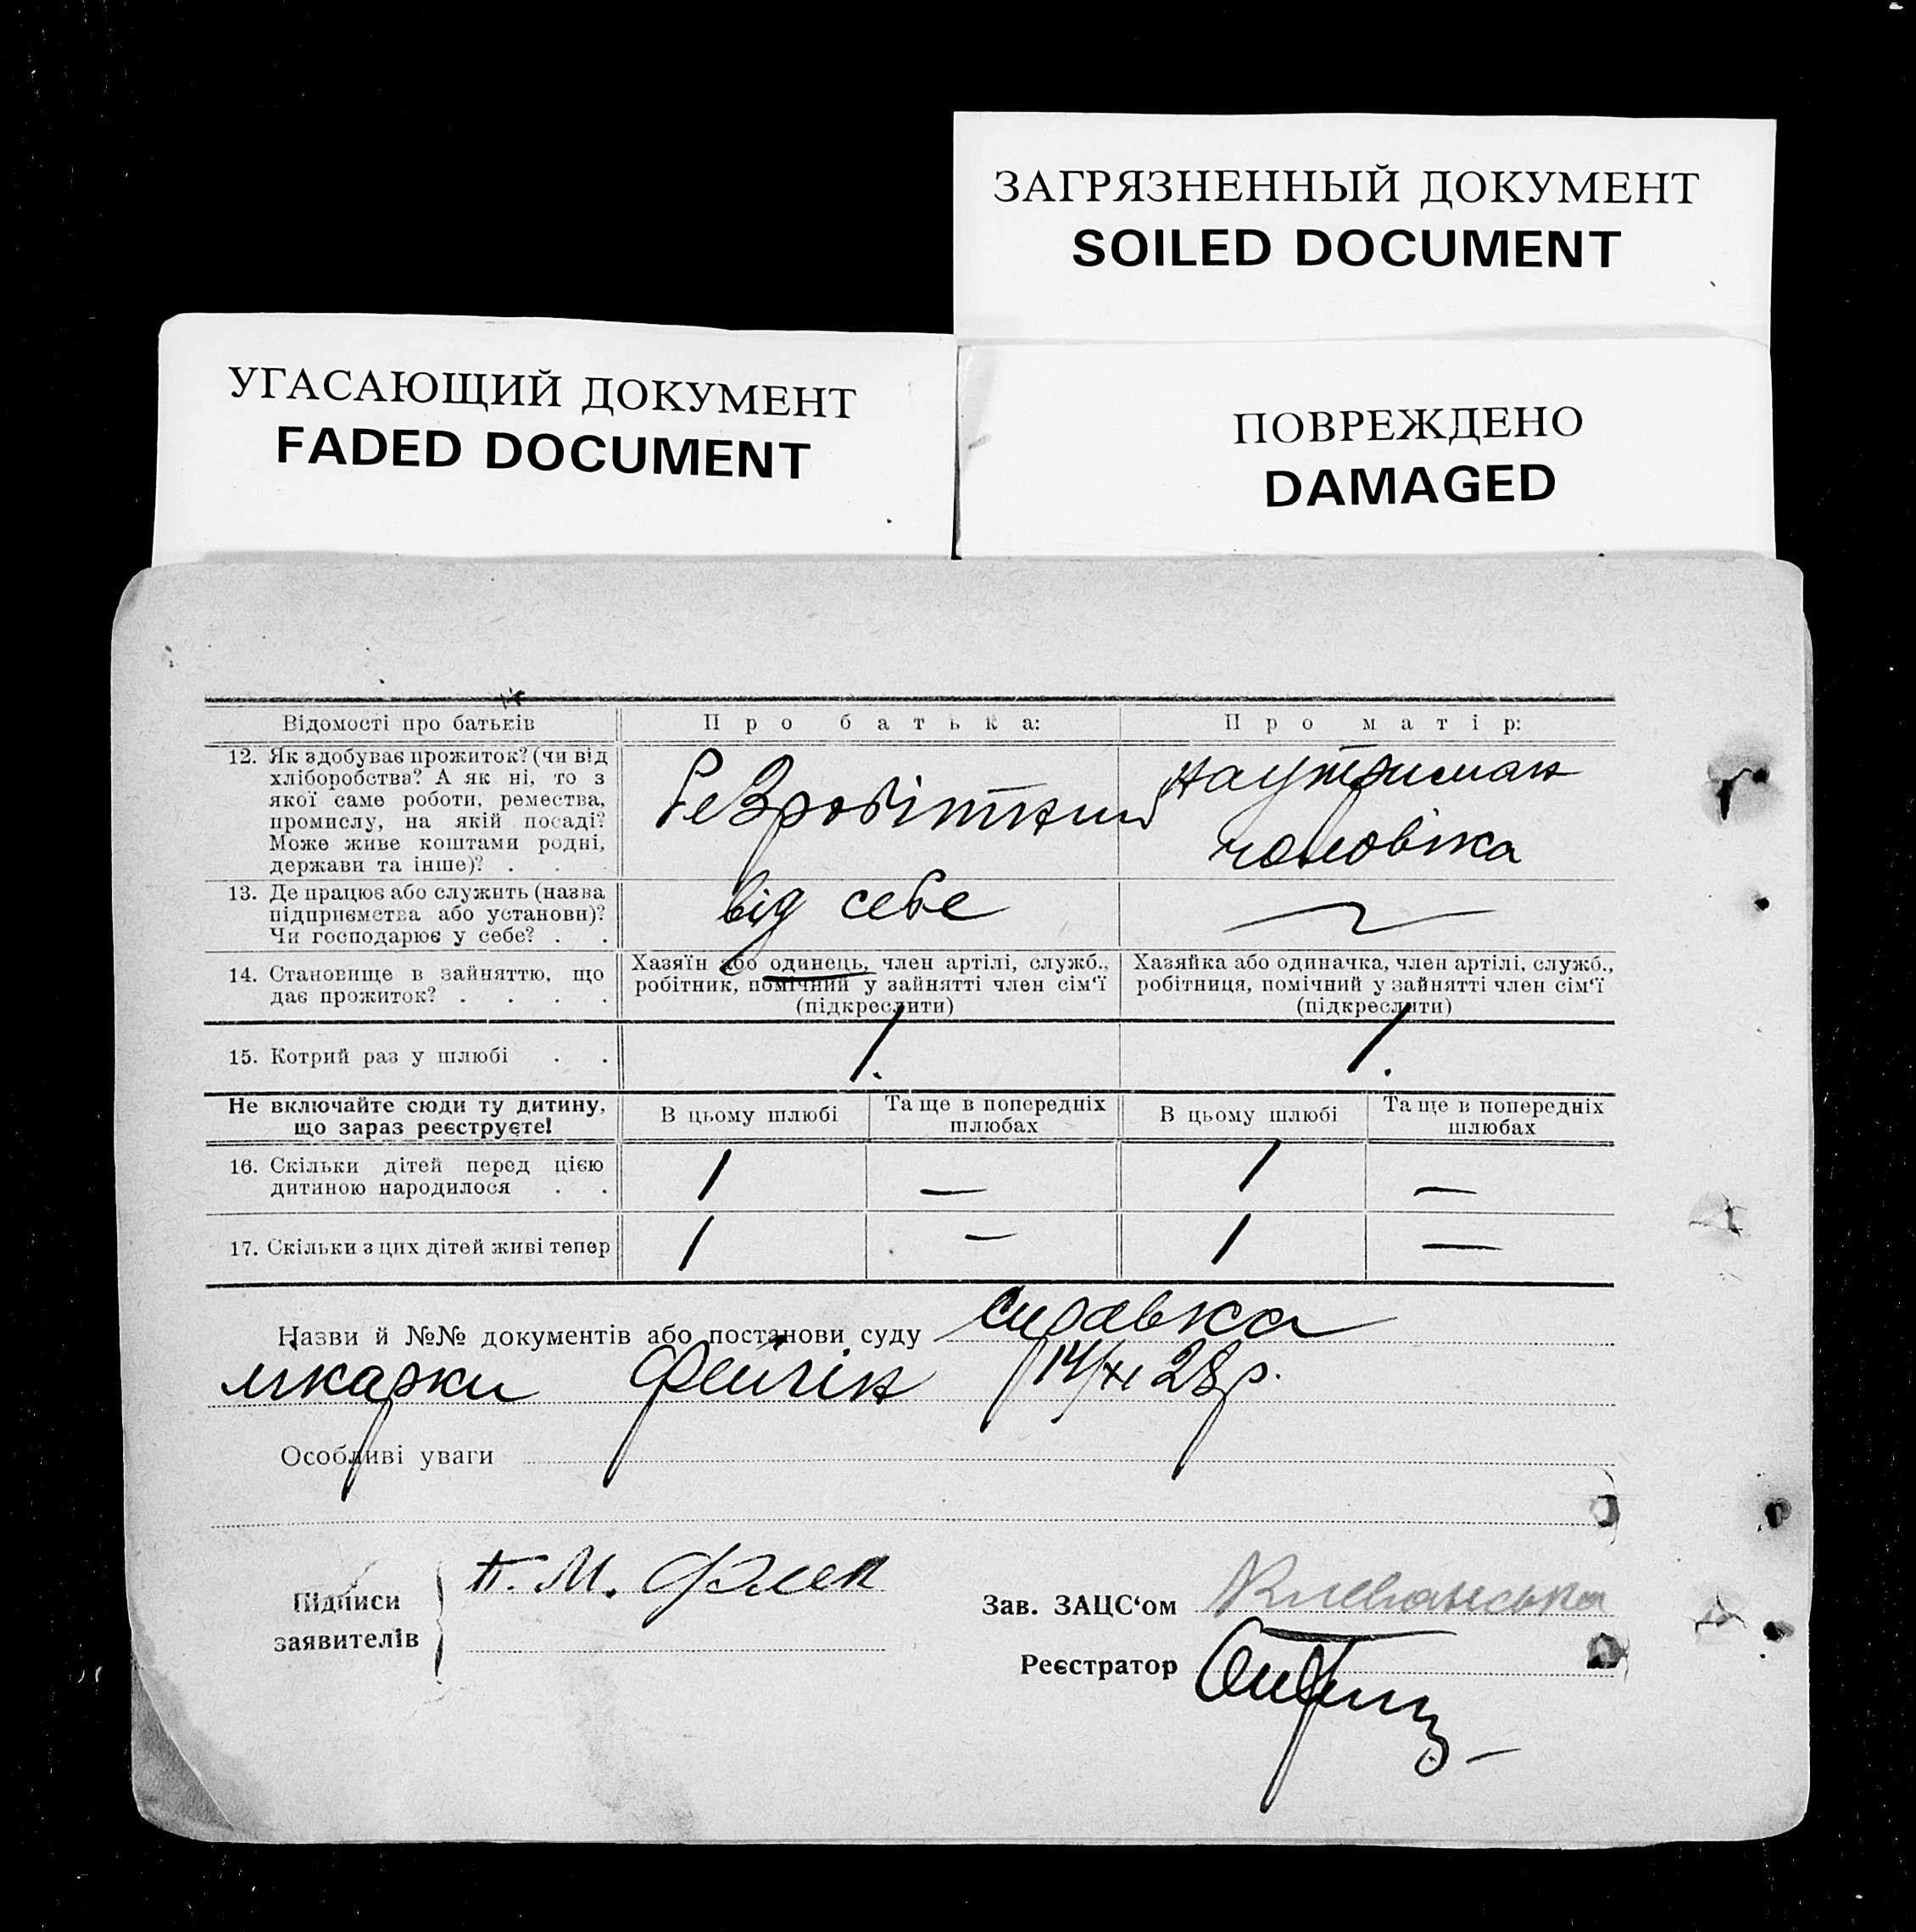 ЗАГРЯЗНЕННЫЙ ДОКУМЕНТ
SOILED DOCUMENT
УГАСАЮЩИЙ ДОКУМЕНТ
FADED DOCUMENT
ПОВРЕЖДЕНО
DAMAGED
Відомості про батьків
Про батька:
Про матір:
12. Як здобуває прожиток? (чи від
хліборобства? А як ні, то з
якої саме роботи, ремества,
промислу, на якій посаді?
Може живе коштами родні,
держави та інше)? . . .
на утриман
чоловіка
13. Де працює або служить (назва
підприємства або установи)?
Чи господарює у себе? . .
від себе
14. Становище в зайняттю, що
дає прожиток? . . . .
Хазяїн або одинець, член артілі, служб.,
робітник, помічний у зайнятті член сім‘ї
(підкреслити)
Хазяйка або одиначка, член артілі, служб.,
робітниця, помічний у зайнятті член сім‘ї
(підкреслити)
15. Котрий раз у шлюбі . .
1.
1.
Не включайте сюди ту дитину,
що зараз реєструєте!
В цьому шлюбі
Та ще в попередніх
шлюбах
В цьому шлюбі
Та ще в попередніх
шлюбах
16. Скільки дітей перед цією
дитиною народилося . .
1
—
1
—
17. Скільки з цих дітей живі тепер
1
—
1
—
Назви й №№ документів або постанови суду справка
лікарки 14/XI 28р.
Особливі уваги
Підписи
заявителів
Зав. ЗАЦС‘ом
Реєстратор